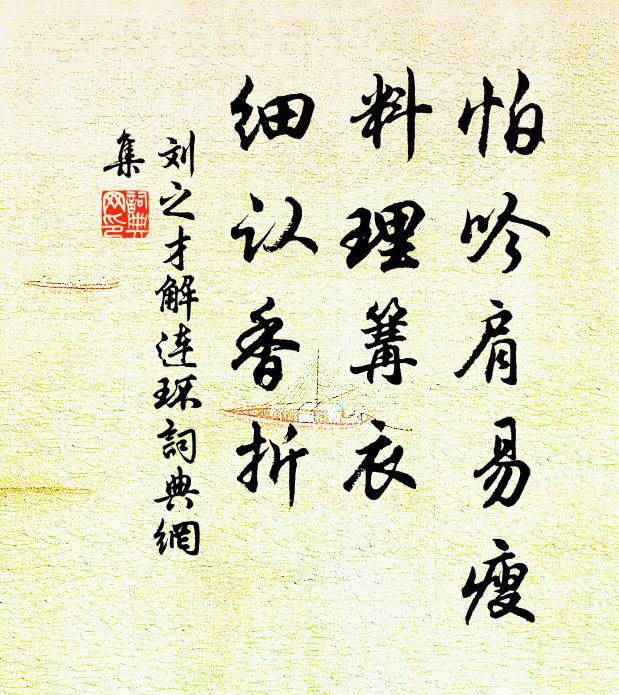 怕吟肩易瘦
料理篝衣
细认香折
刘之才解连环詞典網
集
詞典
网印